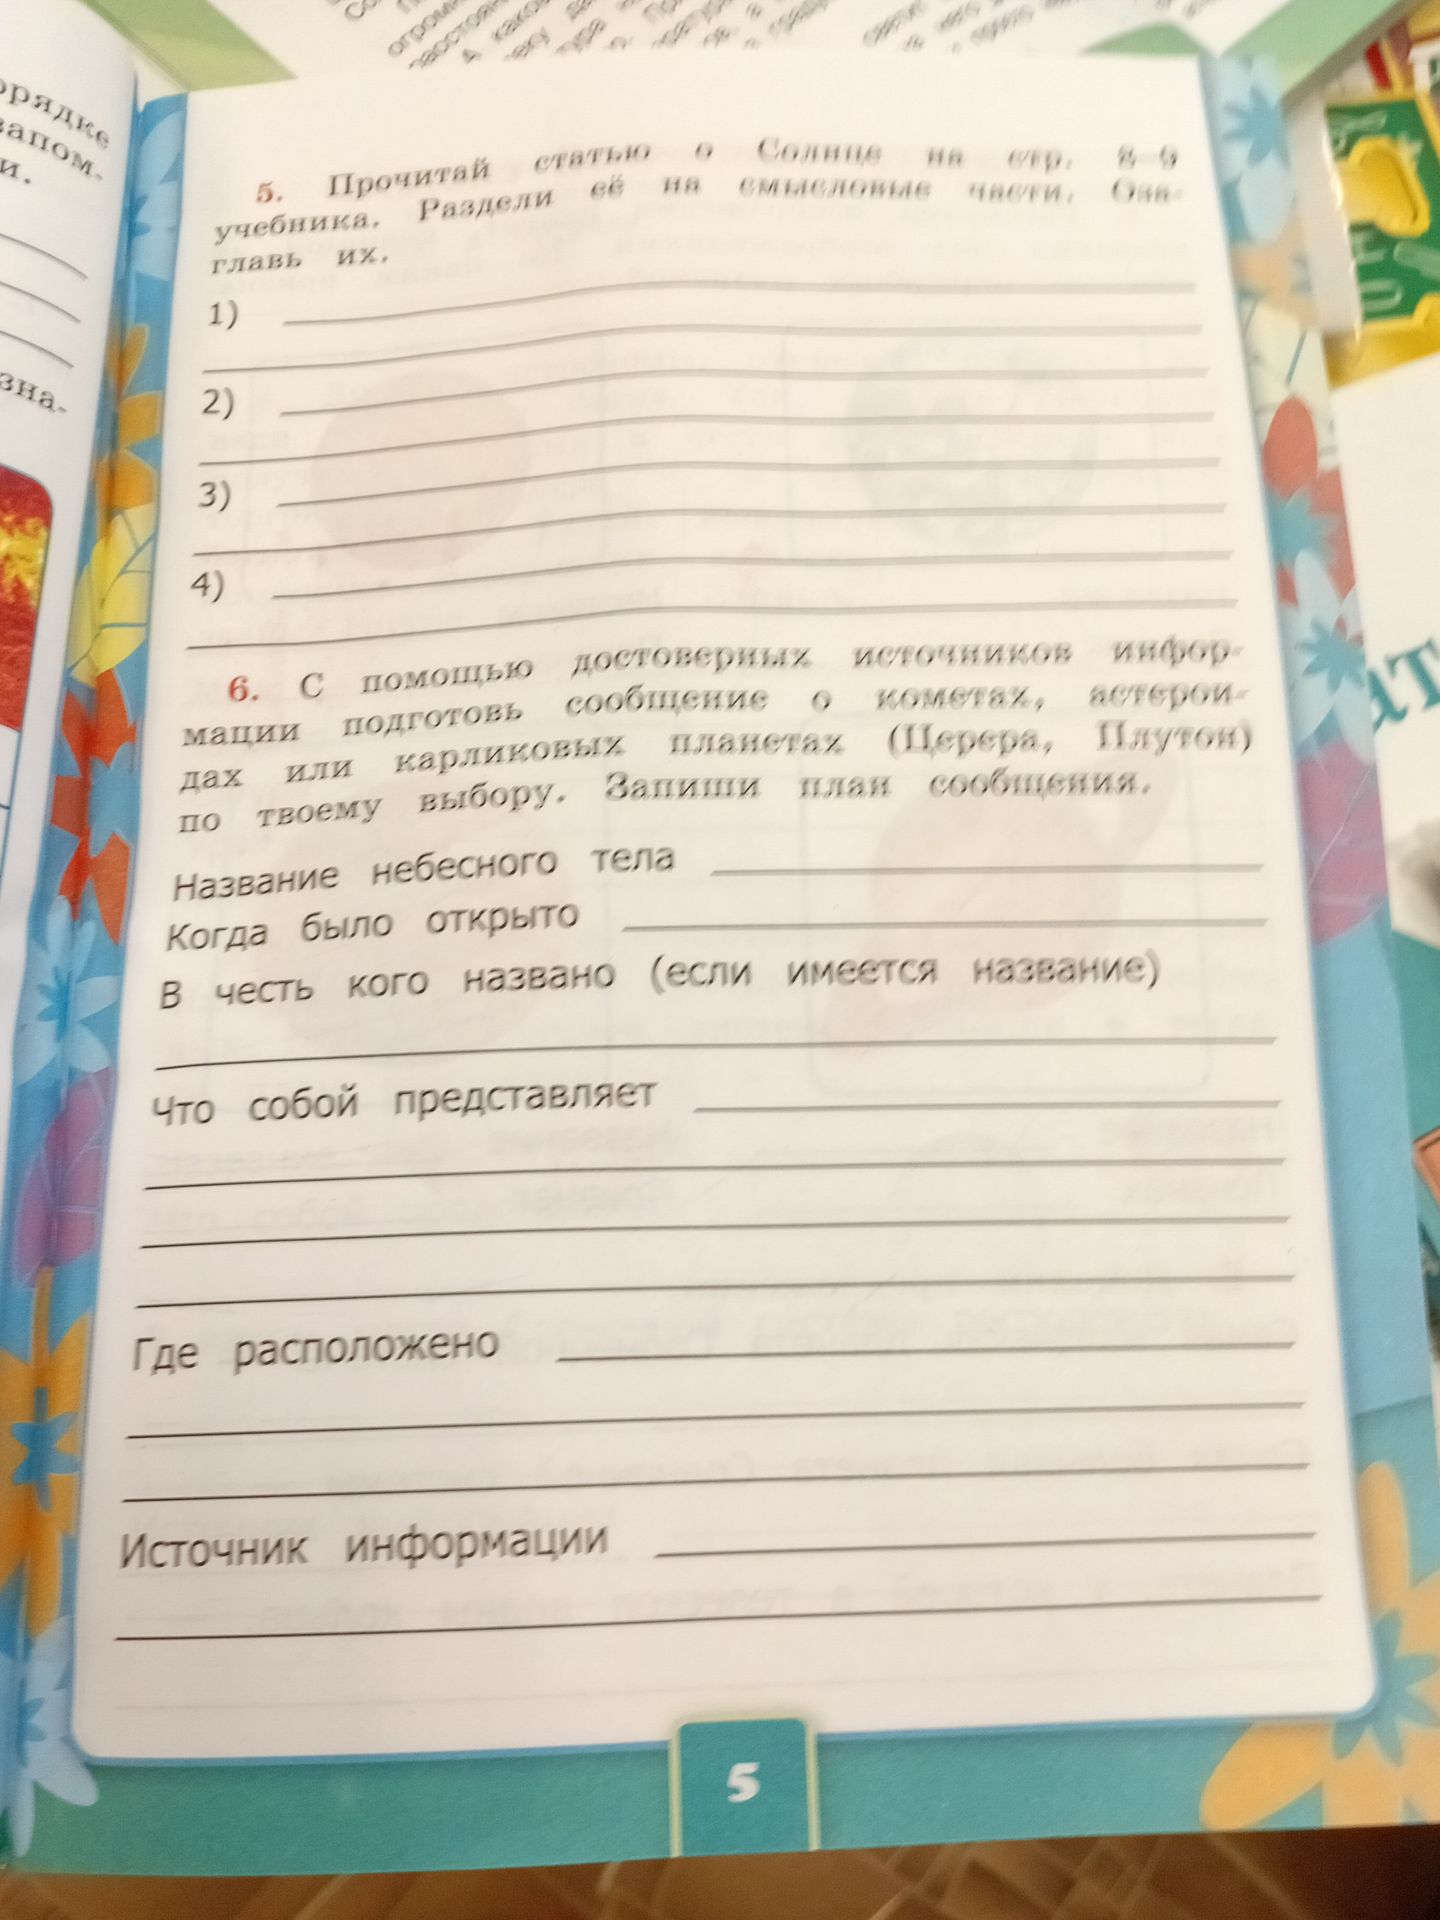 орядке
запом-
и.
зна-
5. Прочитай статью о Солнце на стр. 8–9
учебника. Раздели её на смысловые части. Оза-
главь их.
1)
2)
3)
4)
6. С помощью достоверных источников инфор-
мации подготовь сообщение о кометах, астерои-
дах или карликовых планетах (Церера, Плутон)
по твоему выбору. Запиши план сообщения.
Название небесного тела
Когда было открыто
В честь кого названо (если имеется название)
Что собой представляет
Где расположено
Источник информации
5